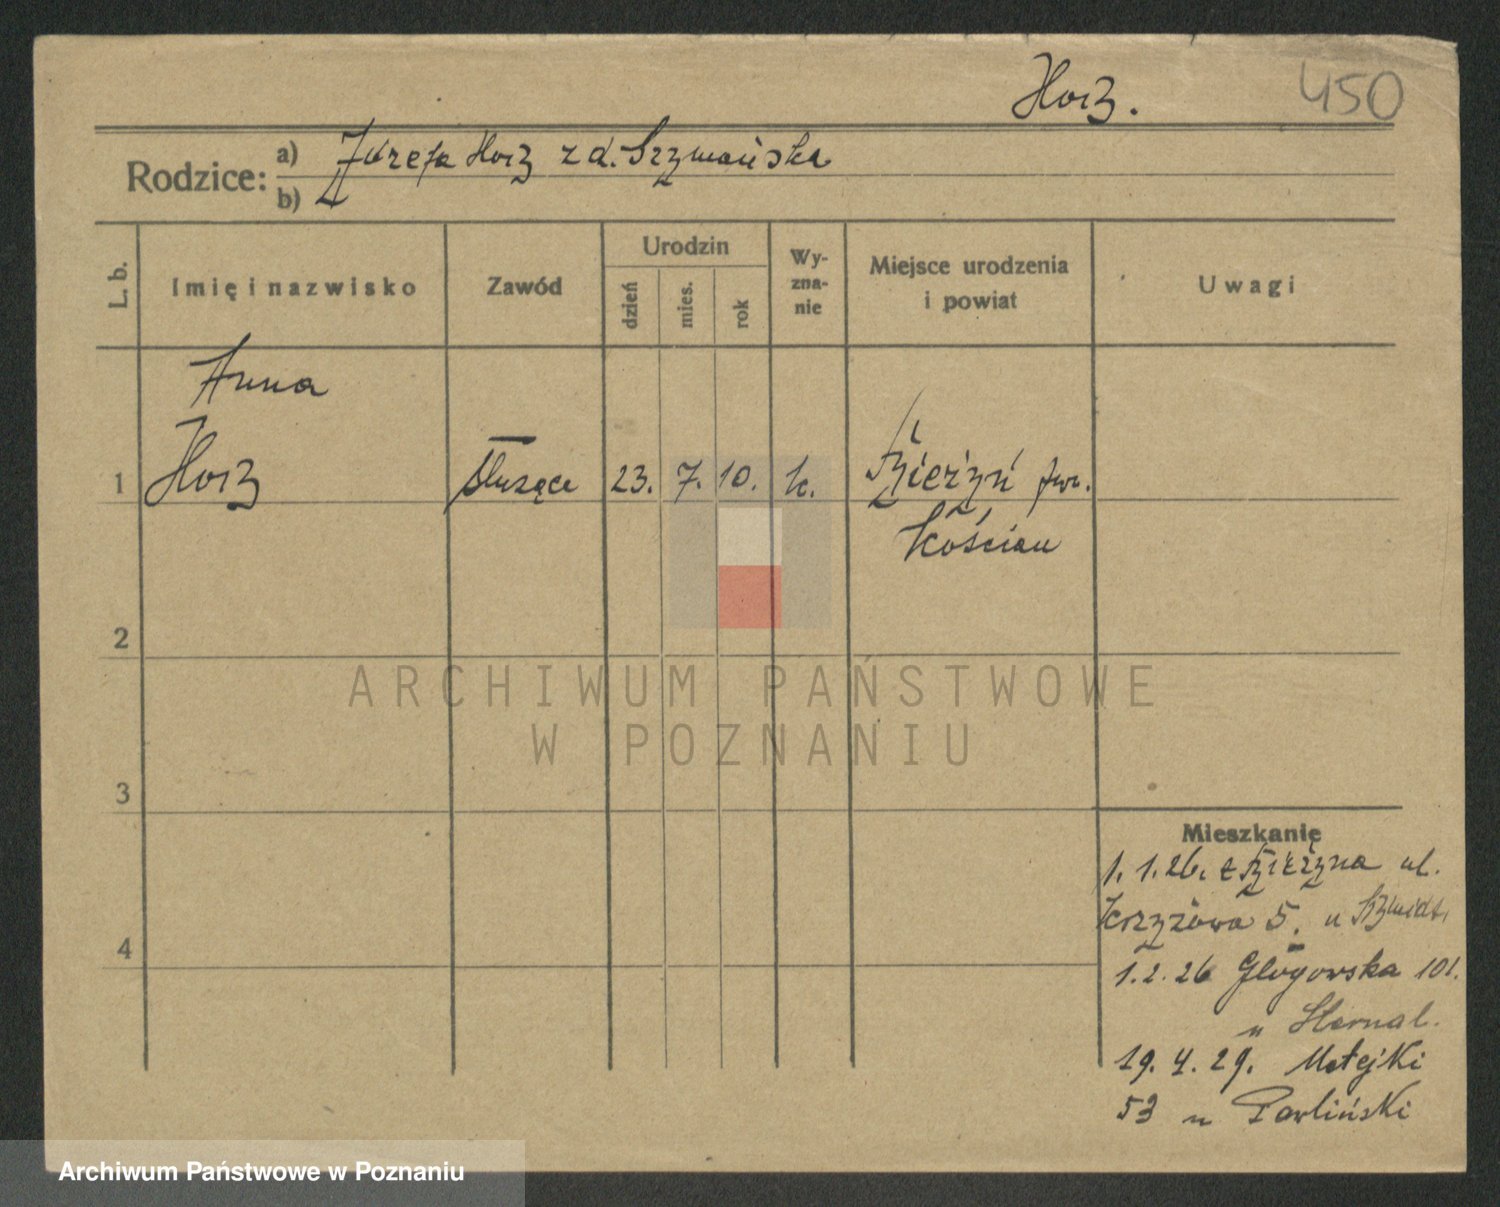 Horz.
450
Rodzice:
a) Józefa Horz z d. Szymańska
b)
L. b.
Imię i nazwisko
Zawód
Urodzin
dzień
mies.
rok
Wy-
zna-
nie
Miejsce urodzenia
i powiat
Uwagi
Anna
1 Horz służąca 23. 7. 10. k.
pow.
Kościan
2
3
4
Mieszkanie
1. 1. 26. z ul.
Krzyżowa 5. u Szmidt.
1. 2. 26 Głogowska 101.
u
19. 4. 29. Matejki
53 u Pawliński
ARCHIWUM PAŃSTWOWE
W POZNANIU
Archiwum Państwowe w Poznaniu